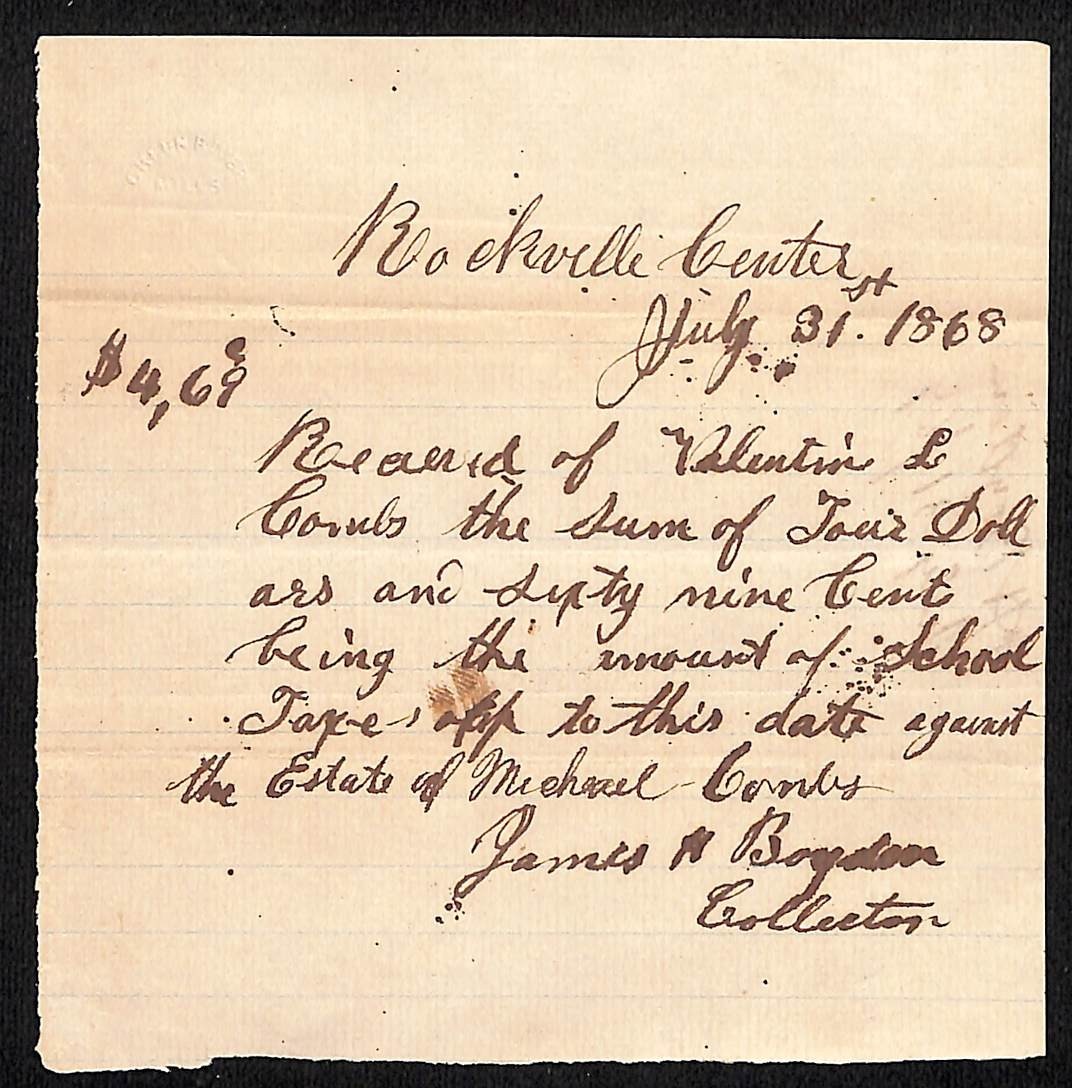 MILLS
Rockville Center
July 31st. 1868
$4,69c
Received of Valentine L
Combs the Sum of Four Doll
ars and Sixty nine Cent
being the amount of School
Taxes upp to this date against
the Estate of Michael Combs
James H Boyden
Collector